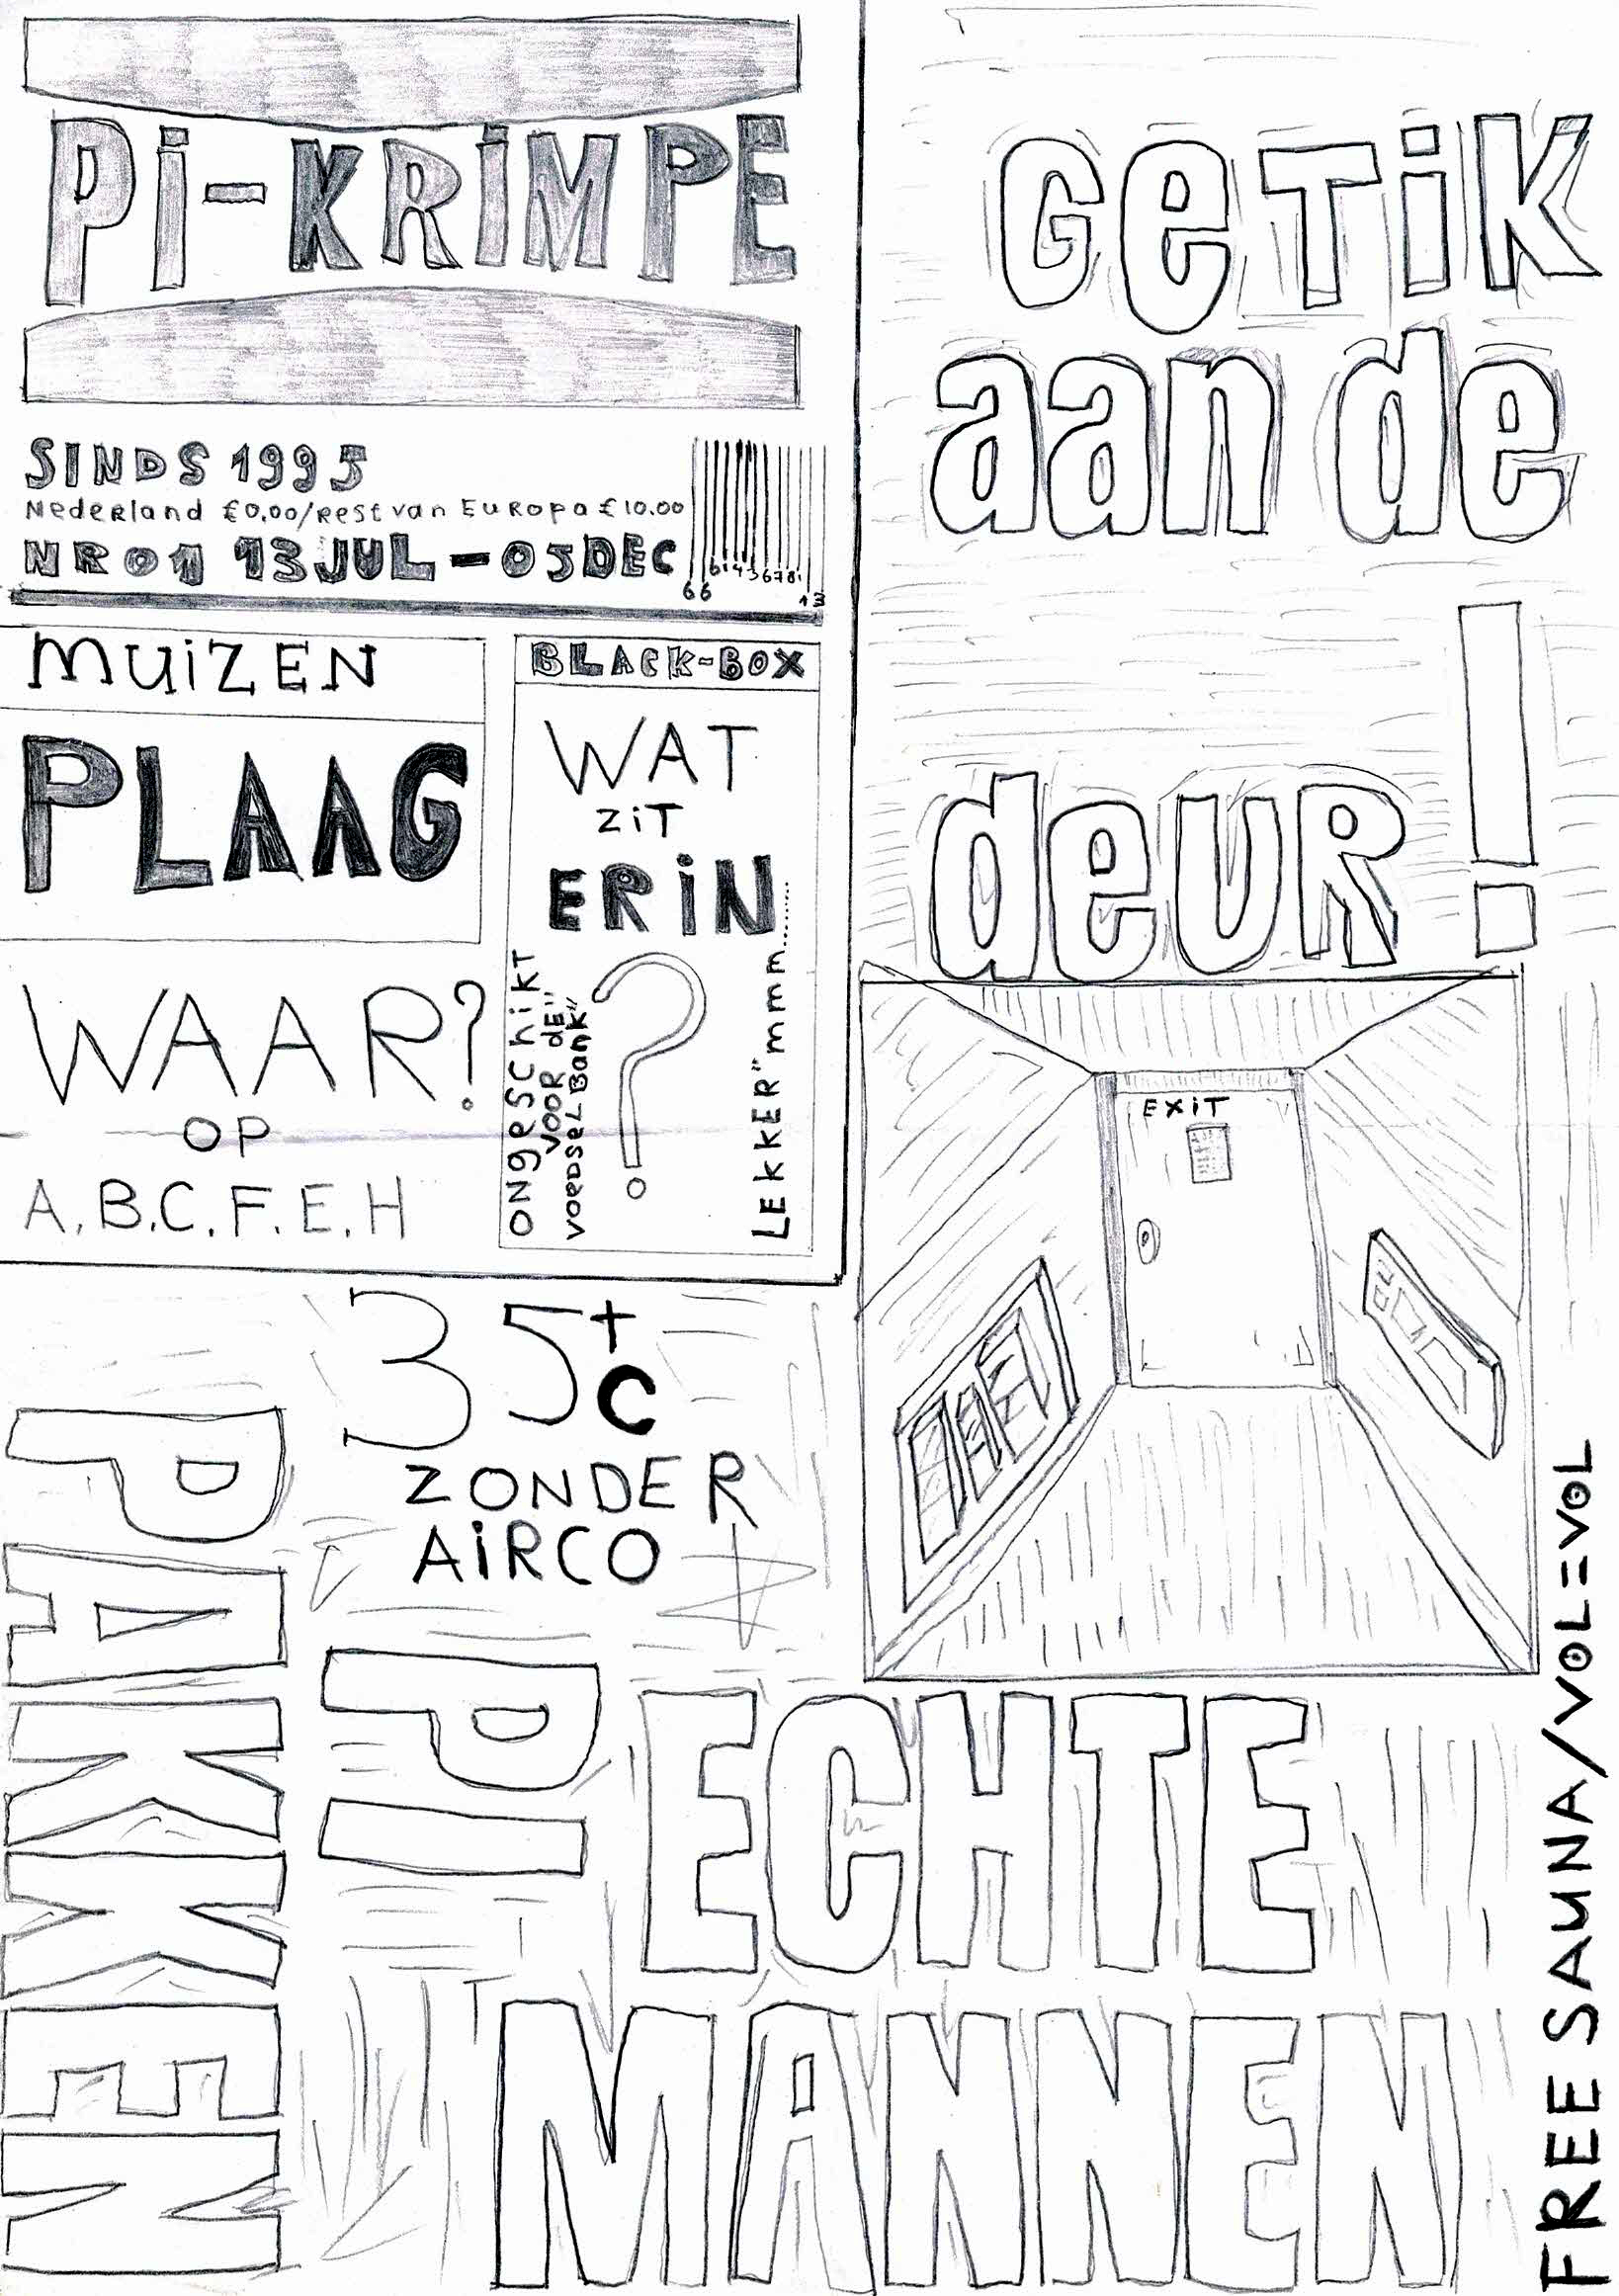 Pi-KRiMPE
SINDS 1995
NedeRland £0,00/Rest van EuRopa £10.00
NR01 13 JUL - 05 DEC
muiZEN
PLAAG
WAAR?
OP
A.B.C.F.E.H
BLACK-BOX
WAT
ZiT
ERiN
?
ONgeSChiKT
VOOR dE"
VOEDSELBanK"
LEKKER"mmm.......
GeTiK
aan de
deUR!
EXiT
35+
C
ZONDER
AiRCO
PAKKEN
PI
ECHTE
MANNEN
FREE SAUNA/VOL=VOL